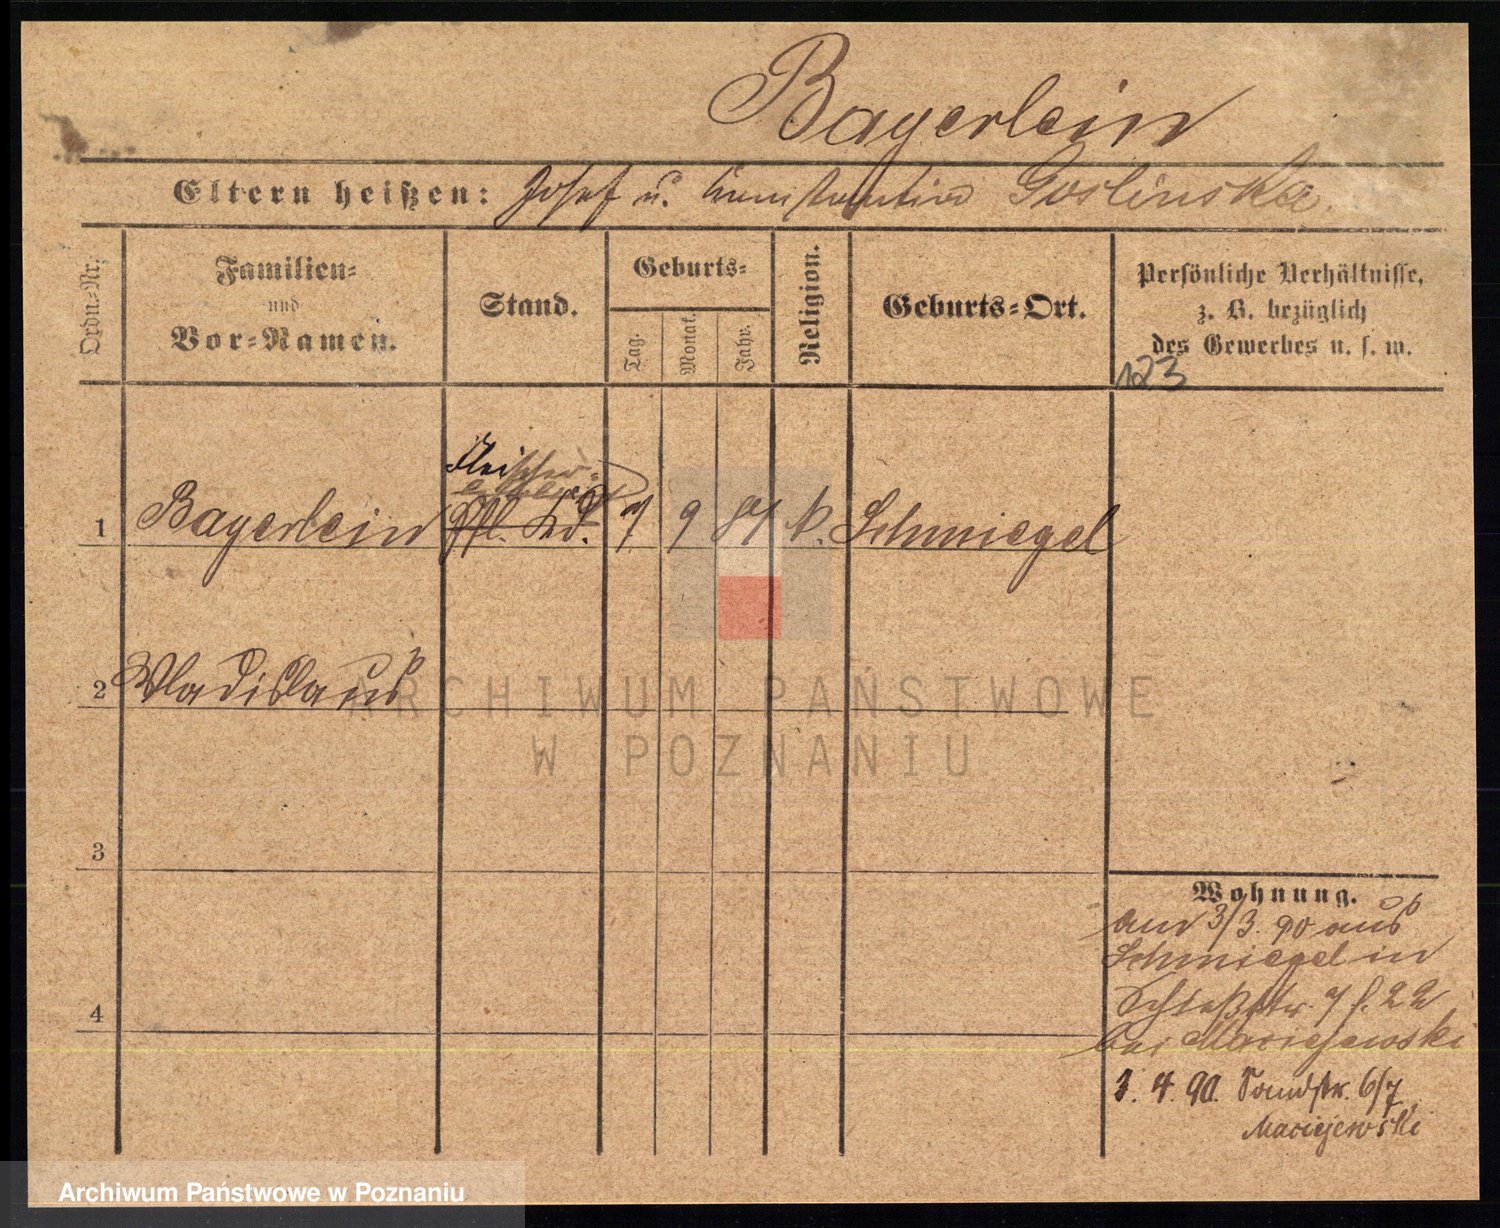 Bayerlein
Eltern heißen: Josef u. Constantia Goslinska.
Ordn.-Nr.
Familien-
und
Vor-Namen.
Stand.
Geburts-
Tag.
Monat.
Jahr.
Religion.
Geburts-Ort.
Persönliche Verhältnisse,
z. B. bezüglich
des Gewerbes u. s. w.
123
Fleischer-
1 Bayerlein 7 9 k. Schmiegel
2 Wladislaus
3
4
Wohnung.
am 3/3. 90 aus
Schmiegel in
Schloßstr. 7 f. 22
bei Maciejewski
3. 4. 90. Sandstr. 6/7
Maciejewski
ARCHIWUM PAŃSTWOWE
W POZNANIU
Archiwum Państwowe w Poznaniu